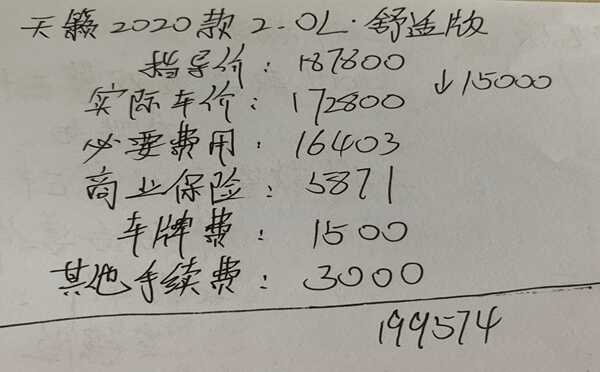 天籁2020款2.0L·舒适版
指导价:187800
↓15000
实际车价:172800
必要费用:16403
商业保险:5871
车牌费:1500
其他手续费:3000
199574